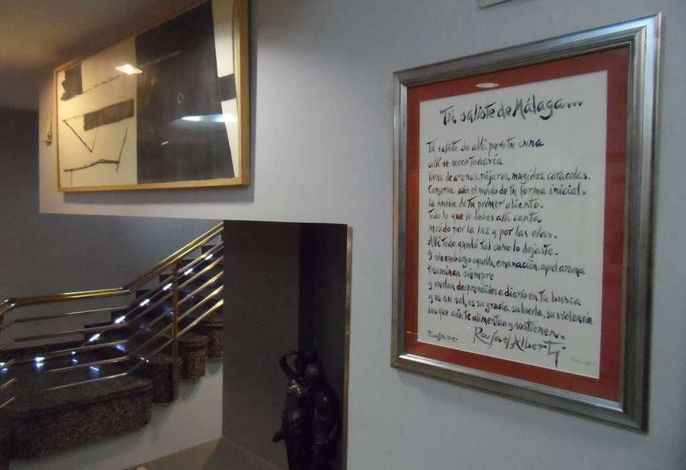 Tú saliste de Málaga...
Tú saliste de allí pero tu cuna
allí se mece todavía
llena de arenas, pájaros, mugidos, caracolas.
Conserva aún el molde de tu forma inicial.
la huella de tu primer aliento.
Todo lo que le dabas allí canta
movido por la luz y por las olas.
Allí todo quedó tal como lo dejaste.
Y sin embargo aquella emanación, aquel aroma
transmiten siempre
y vuelan desprendidos a diario en tu busca
y es su sal, es su gracia, su burla, su violencia
las que aún te alimentan y sostienen.
Rafael Alberti